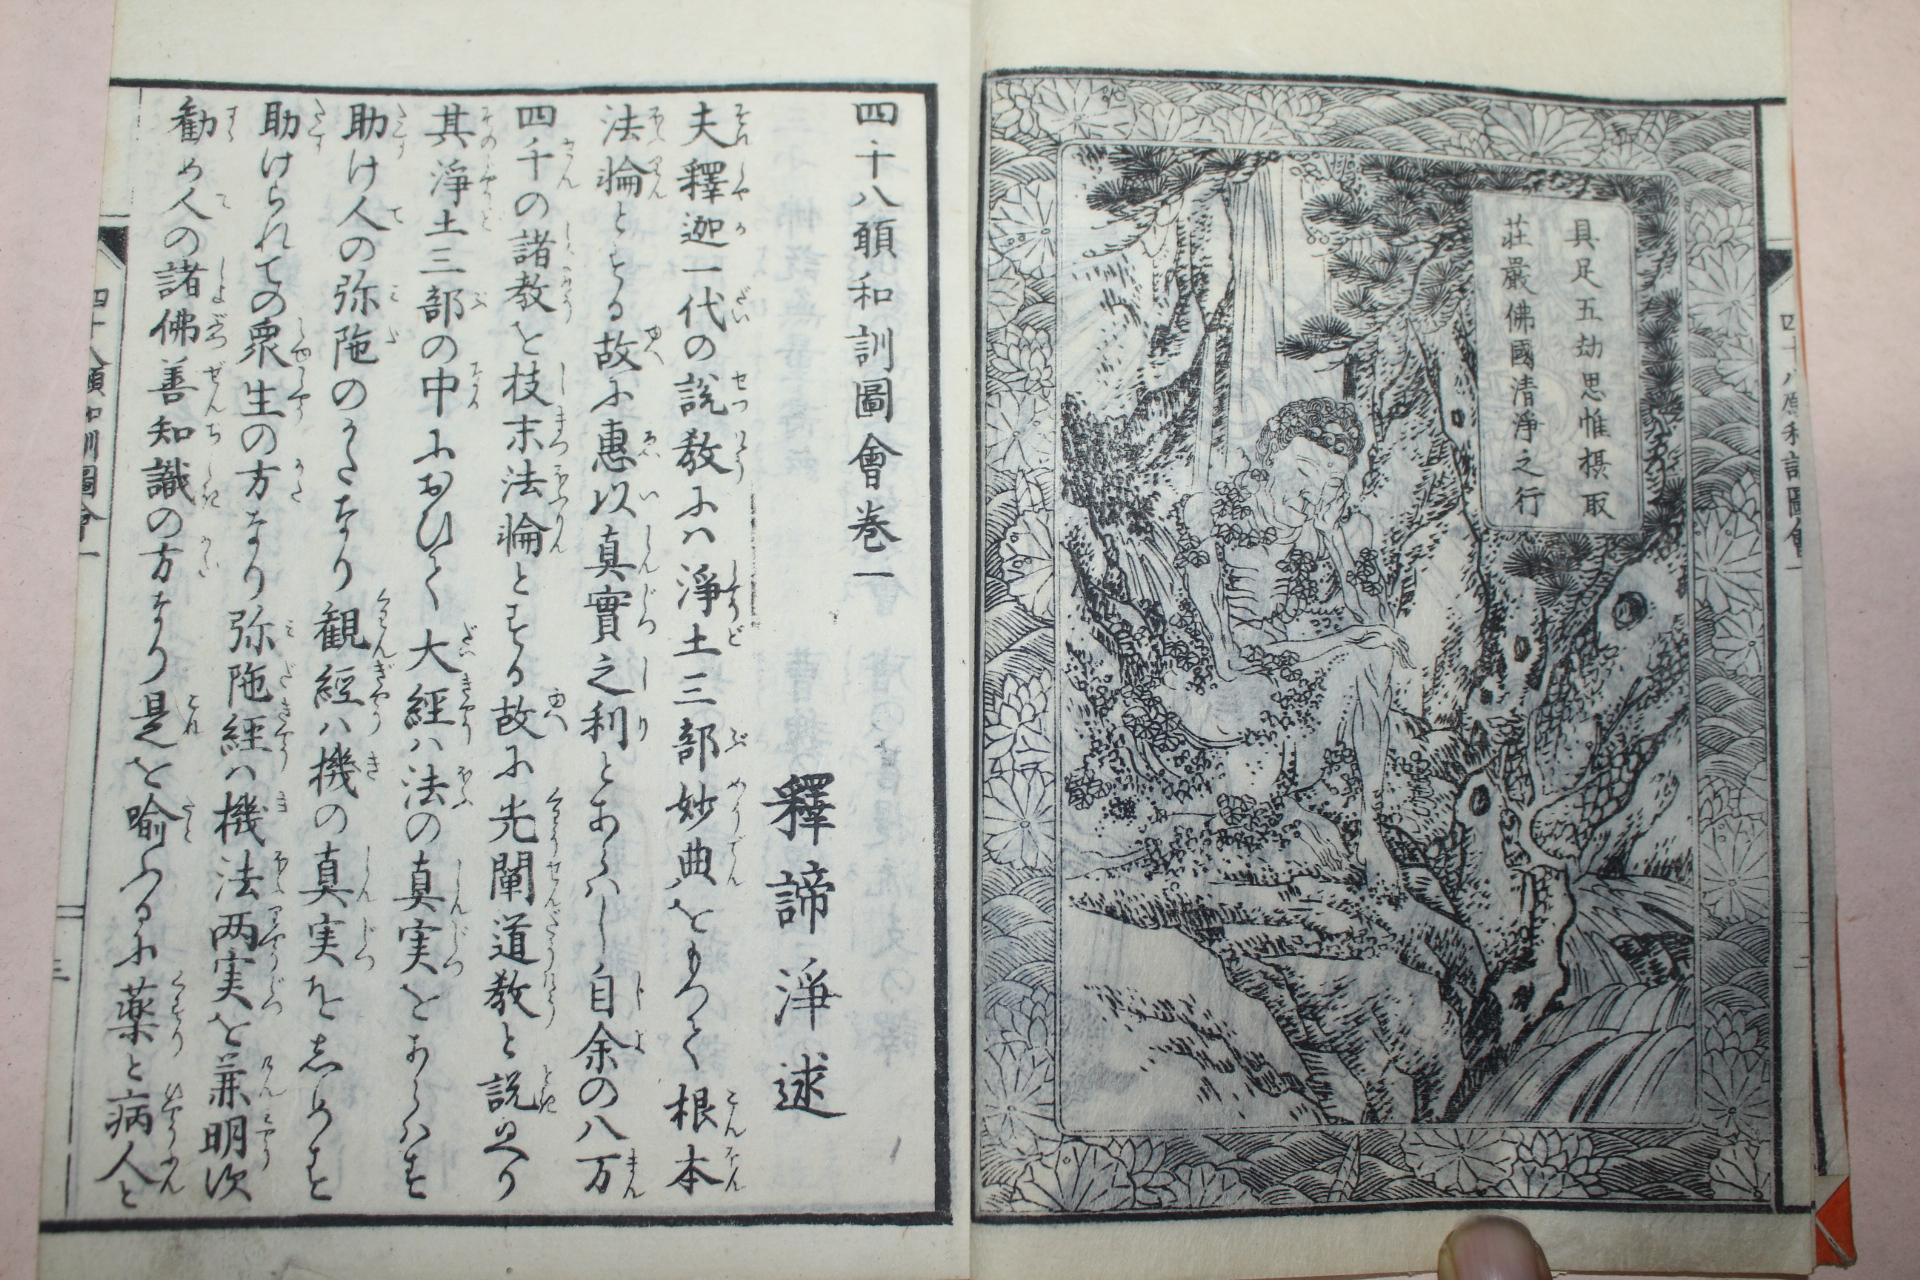 具足五劫思惟摂取
荘嚴佛國清淨之行
四十八願和訓圖會巻一
釋諦淨述
夫釋迦一代の説教にハ淨土三部妙典をもつて根本
法輪とする故に惠以真實之利とあらハし自余の八万
四千の諸教を枝末法輪とする故に先闡道教と説とり
其淨土三部の中におひて大經ハ法の真実をあらハす
助け人の弥陀のかたなり觀經ハ機の真実をしめす
助けられての衆生の方なり弥陀經ハ機法両実を兼明次
勧め人の諸佛善知識の方なり是を喩ふるに薬と病人と
四十八願和訓圖會一
三